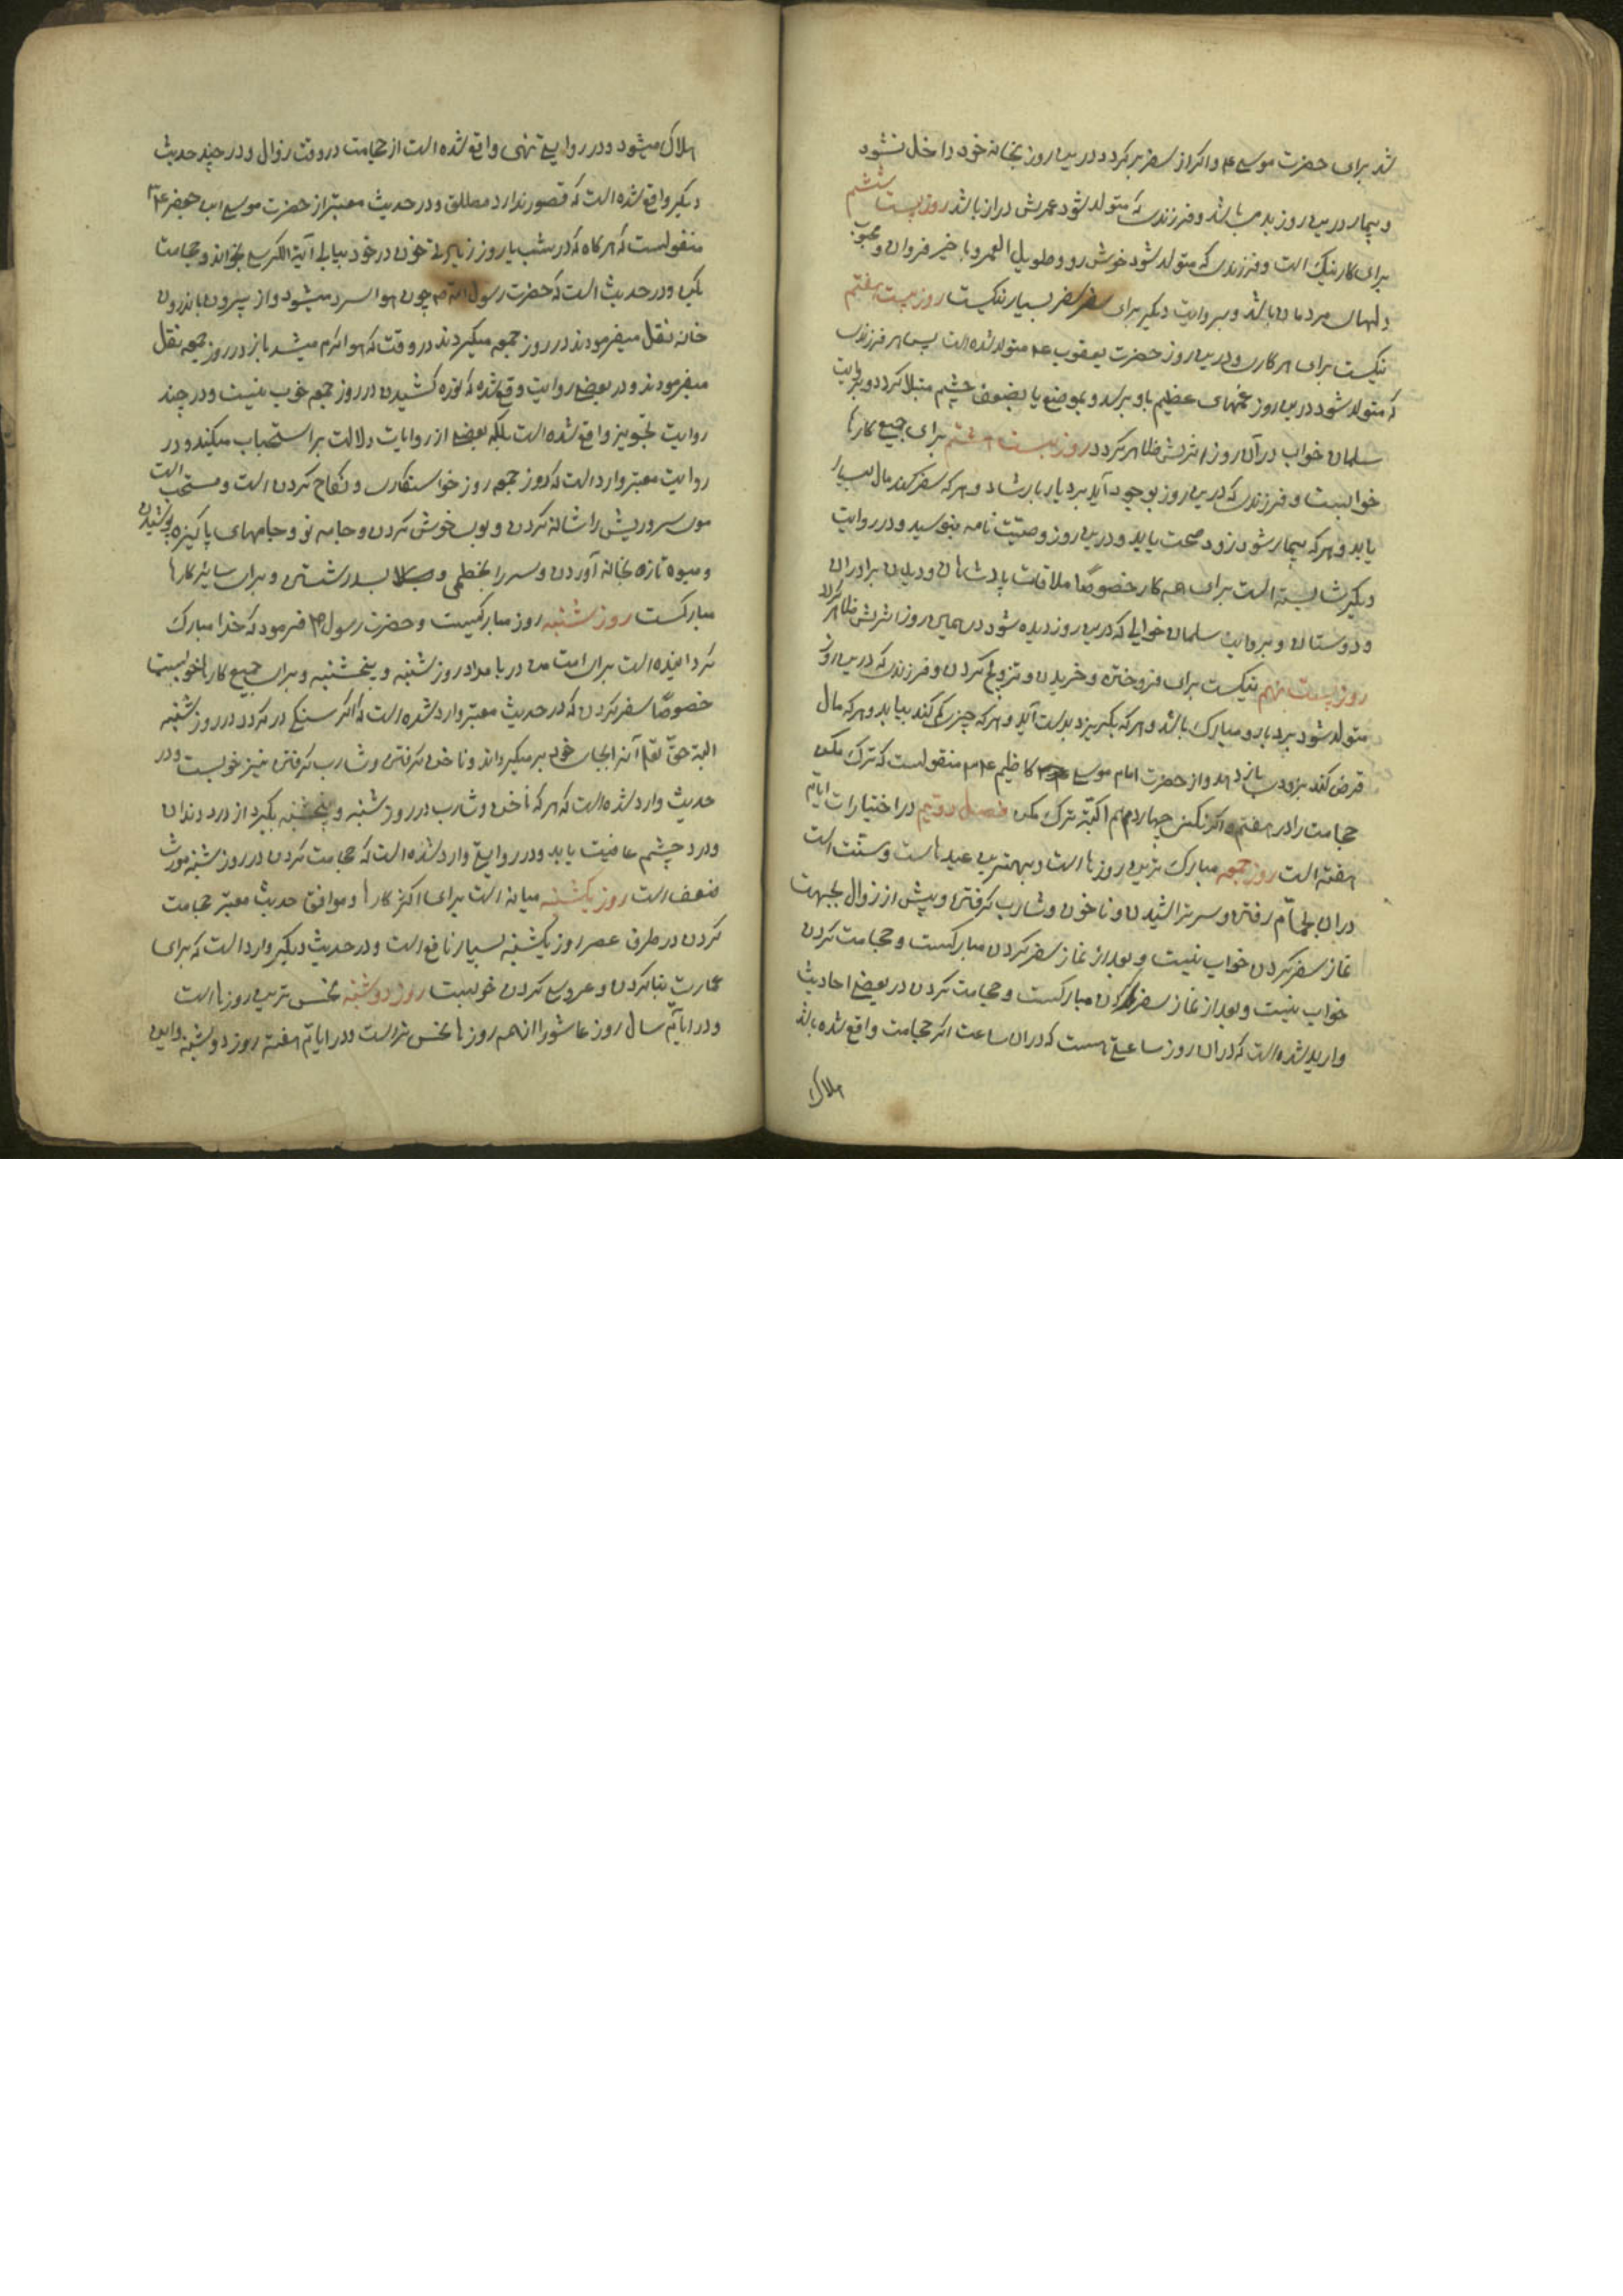 شد برای حضرت موسی ع و اگر از سفر برگردد درین روز بخانه خود داخل نشود
و بیمار درین روز بد میباشد و فرزندی که متولد شود عمرش دراز باشد روز بیست ششم
برای کار نیک است و فرزندی که متولد شود خوش رو و طویل العمر و با خیر فراوان و محبوب
دلهای مردمان باشد و بروایت دیگر برای سفر سفر بسیار نیکست روز بیست هفتم
نیکست برای هر کاری و درین روز حضرت یعقوب ع متولد شده است پس هر فرزندی
که متولد شود درین روز غمهای عظیم باو برسد و بضعف چشم مبتلا گردد و بروایت
سلمان خواب در آن روز اثرش ظاهر گردد روز بیست هشتم برای جمیع کارها
خوبست و فرزندی که درین روز بوجود آید بردبار باشد و هر که سفر کند مال بسیار
یابد و هر که بیمار شود زود صحت یابد و درین روز وصیت نامه بنویسید و در روایت
دیگر شایسته است برای هر کار خصوصًا ملاقات پادشاهان و دیدن برادران
و دوستان و بروایت سلمان خوابی که درین روز دیده شود در همان روز اثرش ظاهر گردد
روز بیست نهم نیکست برای فروختن و خریدن و تزویج کردن و فرزندی که درین روز
متولد شود بردبار و مبارک باشد و هر که بگریزد بدست آید و هر که چیزی گم کند بیابد و هر که مال
قرض کند بزودی باز دهد و از حضرت امام موسی کاظم ع منقولست که ترک مکن
حجامت را در هفتم و اگر نکنی چهاردهم البته ترک مکن فصل دویم در اختیارات ایام
هفته است روز جمعه مبارک ترین روزها است و بهترین عیدهاست و سنت است
در آن بحمّام رفتن و سر تراشیدن و ناخن و شارب گرفتن و پیش از زوال بجهت
نماز سفر کردن خوب نیست و بعد از نماز سفر کردن مبارکست و حجامت کردن
خوب نیست و بعد از نماز سفر کردن مبارکست و حجامت کردن در بعضی احادیث
وارد شده است که در آن روز ساعتی هست که در آن ساعت اگر حجامت واقع شده باشد
هلاک
هلاک میشود و در روایتی نهی واقع شده است از حجامت در وقت زوال و در چند حدیث
دیگر واقع شده است که قصور ندارد مطلق و در حدیث معتبر از حضرت موسی ابن جعفر ع
منقولست که هر گاه که در شب یا روز زیادتی خون در خود بیابی آیة الکرسی بخوان و حجامت
بکن و در حدیث است که حضرت رسول الله ص چون هوا سرد میشود و از بیرون باندرون
خانه نقل میفرمودند در روز جمعه میکردند در وقت که هوا گرم میشد باز در روز جمعه نقل
میفرمودند و در بعضی روایت وقع شده که نوره کشیدن در روز جمعه خوب نیست و در چند
روایت تجویز واقع شده است بلکه بعضی از روایات دلالت بر استحباب میکند و در
روایت معتبر وارد است که روز جمعه روز خواستگاری و نکاح کردن است و مستحب است
موی سر و ریش را شانه کردن و بوی خوش کردن و جامه نو و جامهای پاکیزه پوشیدن
و میوه تازه بخانه آوردن و سر را بخطمی و بسدر شستن و برای سایر کارها
مبارکست روز شنبه روز مبارکیست و حضرت رسول ص فرمود که خدا مبارک
گردانیده است برای امت من در بامداد روز شنبه و پنجشنبه و برای جمیع کارها خوبست
خصوصًا سفر کردن که در حدیث معتبر وارد شده است که اگر سنگی در گردد در روز شنبه
البته حقّ تعالی آنرا بجای خود بر میگرداند و ناخن گرفتن و شارب گرفتن نیز خوبست و در
حدیث وارد شده است که هر که ناخن و شارب در روز شنبه و پنجشنبه بگیرد از درد دندان
و درد چشم عافیت یابد و در روایتی وارد شده است که حجامت کردن در روز شنبه مورث
ضعف است روز یکشنبه میانه است برای اکثر کارها و موافق حدیث معتبر حجامت
کردن در طرف عصر روز یکشنبه بسیار نافع است و در حدیث دیگر وارد است که برای
عمارت بنا کردن و عروسی کردن خوبست روز دوشنبه نحس ترین روزها است
و در ایّام سال روز عاشورا از همه روزها نحس تر است و در ایّام هفته روز دوشنبه و این